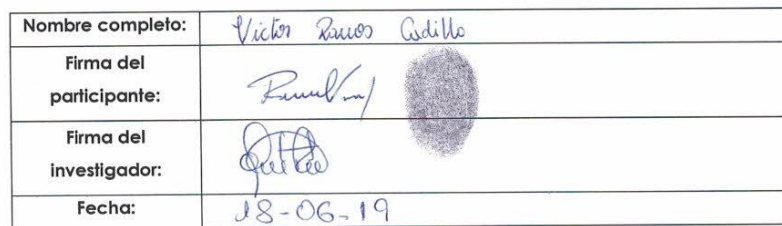 Nombre completo: Victor Ramos Cadillo
Firma del
participante:
Firma del
investigador:
Fecha: 18-06-19